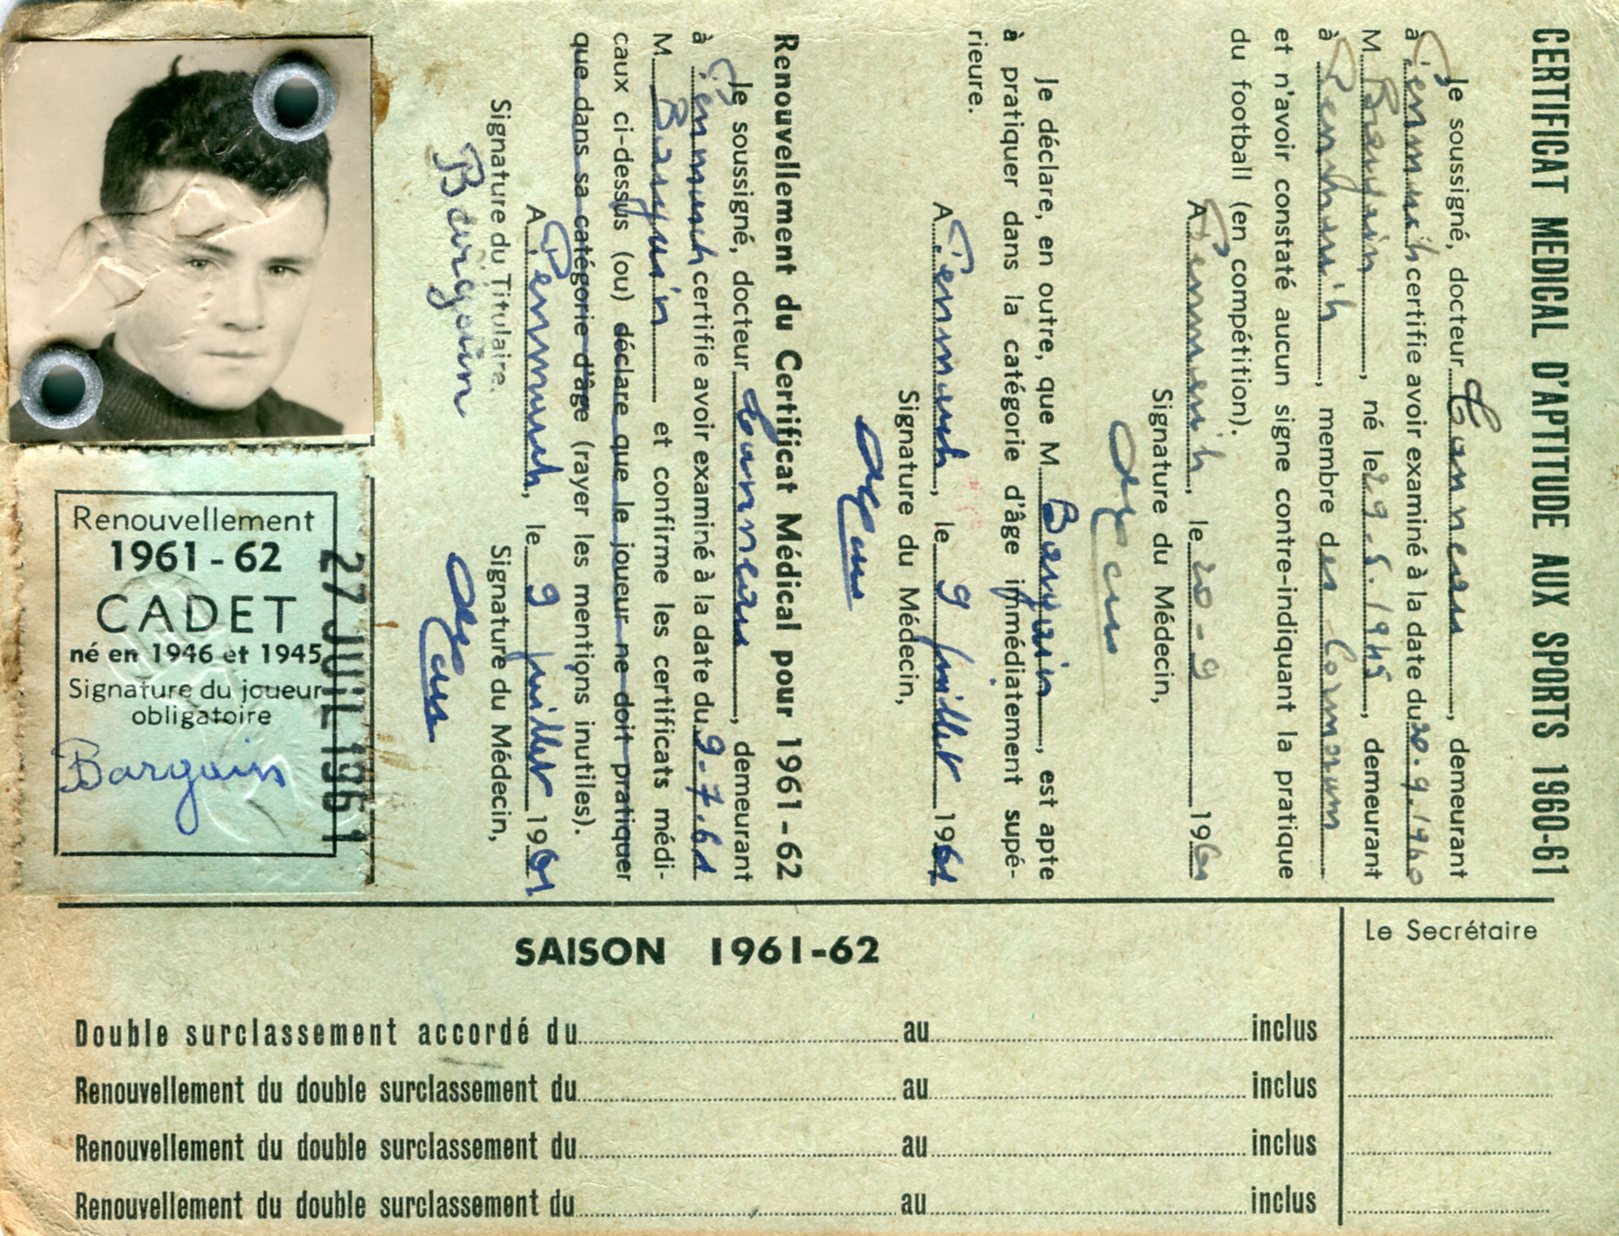 CERTIFICAT MEDICAL D'APTITUDE AUX SPORTS 1960-61
Je soussigné, docteur, demeurant
à Penmarch certifie avoir examiné à la date du 20.9.1960
M. Bargain, né le 29.5.1945, demeurant
à Penmarch, membre des Cormoran
et n'avoir constaté aucun signe contre-indiquant la pratique
du football (en compétition).
A Penmarch, le 20-9 1960
Signature du Médecin,
Je déclare, en outre, que M. Bargain, est apte
à pratiquer dans la catégorie d'âge immédiatement supé-
rieure.
A Penmarch, le 9 juillet 1961
Signature du Médecin,
Renouvellement du Certificat Médical pour 1961-62
Je soussigné, docteur, demeurant
à Penmarch certifie avoir examiné à la date du 9.7.61
M. Bargain et confirme les certificats médi-
caux ci-dessus (ou) déclare que le joueur ne doit pratiquer
que dans sa catégorie d'âge (rayer les mentions inutiles).
A Penmarch, le 9 juillet 1961
Signature du Titulaire. Signature du Médecin,
Bargain
Renouvellement
1961-62
CADET
né en 1946 et 1945
Signature du joueur
obligatoire
Bargain
27 JUIL 1961
SAISON 1961-62
Le Secrétaire
Double surclassement accordé du au inclus
Renouvellement du double surclassement du au inclus
Renouvellement du double surclassement du au inclus
Renouvellement du double surclassement du au inclus